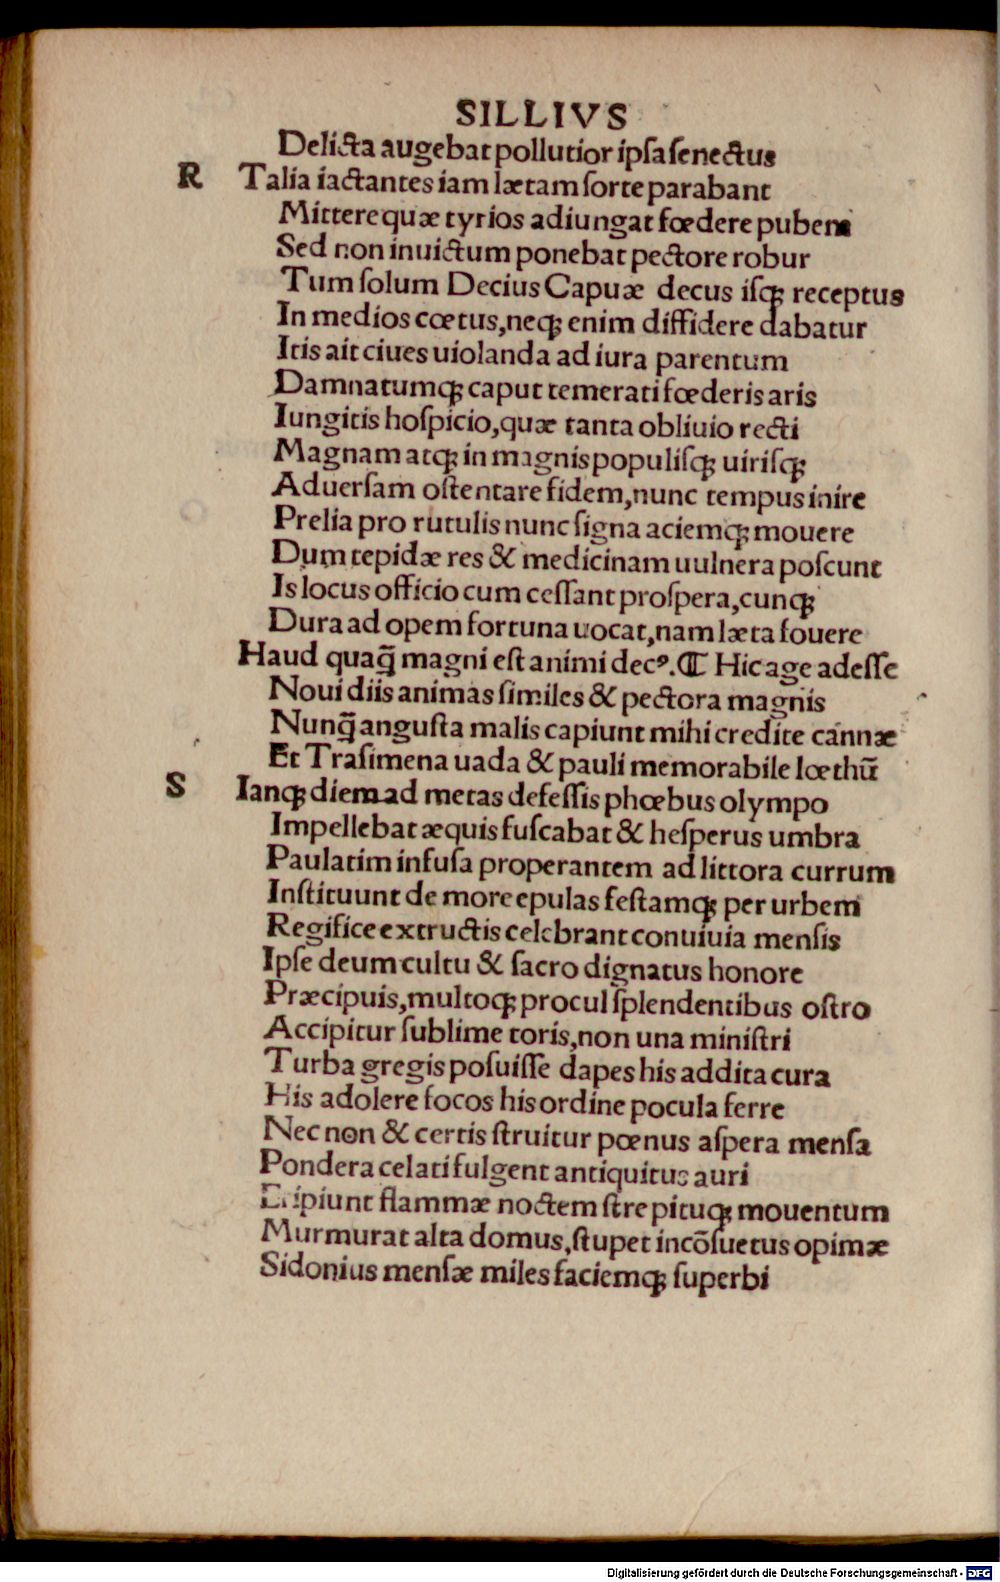 SILLIVS
Delicta augebat pollutior ipsa senectus
R Talia iactantes iam lætam sorte parabant
Mittere quæ tyrios adiungat fœdere pubem
Sed non inuictum ponebat pectore robur
Tum solum Decius Capuæ decus isqꝫ receptus
In medios cœtus,neqꝫ enim diffidere dabatur
Itis ait ciues uiolanda ad iura parentum
Damnatumqꝫ caput temerati fœderis aris
Iungitis hospicio,quæ tanta obliuio recti
Magnam atqꝫ in magnis populisqꝫ uirisqꝫ
Aduersam ostentare fidem,nunc tempus inire
Prelia pro rutulis nunc signa aciemqꝫ mouere
Dum tepidæ res & medicinam uulnera poscunt
Is locus officio cum cessant prospera,cunqꝫ
Dura ad opem fortuna uocat,nam læta fouere
Haud quaq̄ magni est animi decꝰ.⸿ Hic age adesse
Noui diis animas similes & pectora magnis
Nunq̄ angusta malis capiunt mihi credite cannæ
Et Trasimena uada & pauli memorabile lœthū
S Ianqꝫ diem ad metas defessis phœbus olympo
Impellebat æquis fuscabat & hesperus umbra
Paulatim infusa properantem ad littora currum
Instituunt de more epulas festamqꝫ per urbem
Regifice extructis celebrant conuiuia mensis
Ipse deum cultu & sacro dignatus honore
Præcipuis,multoqꝫ procul splendentibus ostro
Accipitur sublime toris,non una ministri
Turba gregis posuisse dapes his addita cura
His adolere focos his ordine pocula ferre
Nec non & certis struitur pœnus aspera mensa
Pondera celati fulgent antiquitus auri
Eripiunt flammæ noctem stre pituqꝫ mouentum
Murmurat alta domus,stupet incōsuetus opimæ
Sidonius mensæ miles faciemqꝫ superbi
Digitalisierung gefördert durch die Deutsche Forschungsgemeinschaft - DFG